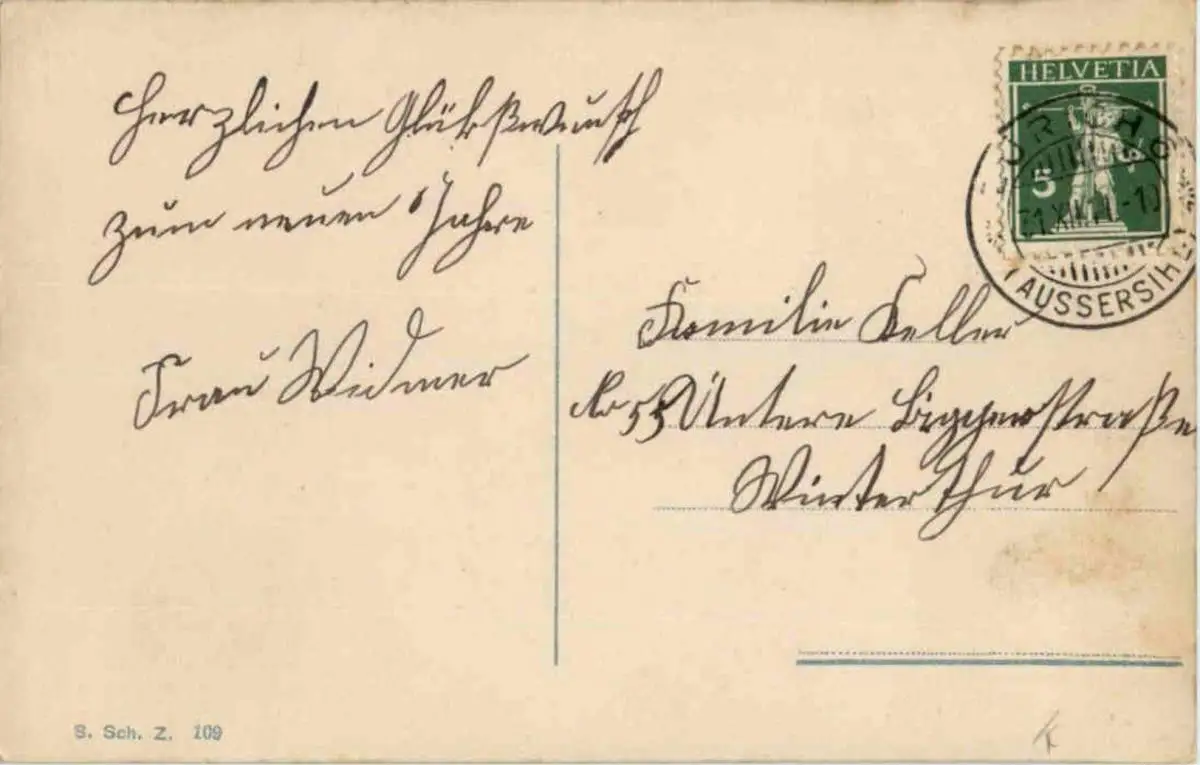 Herzlichen Glükßwunsch
zum neuen Jahre
Frau Widmer
HELVETIA
5
ZÜRICH 6
31.XII.
(AUSSERSIHL)
Familie Keller
No 55 Untere Briggerstraße
Winterthur
S. Sch. Z. 109